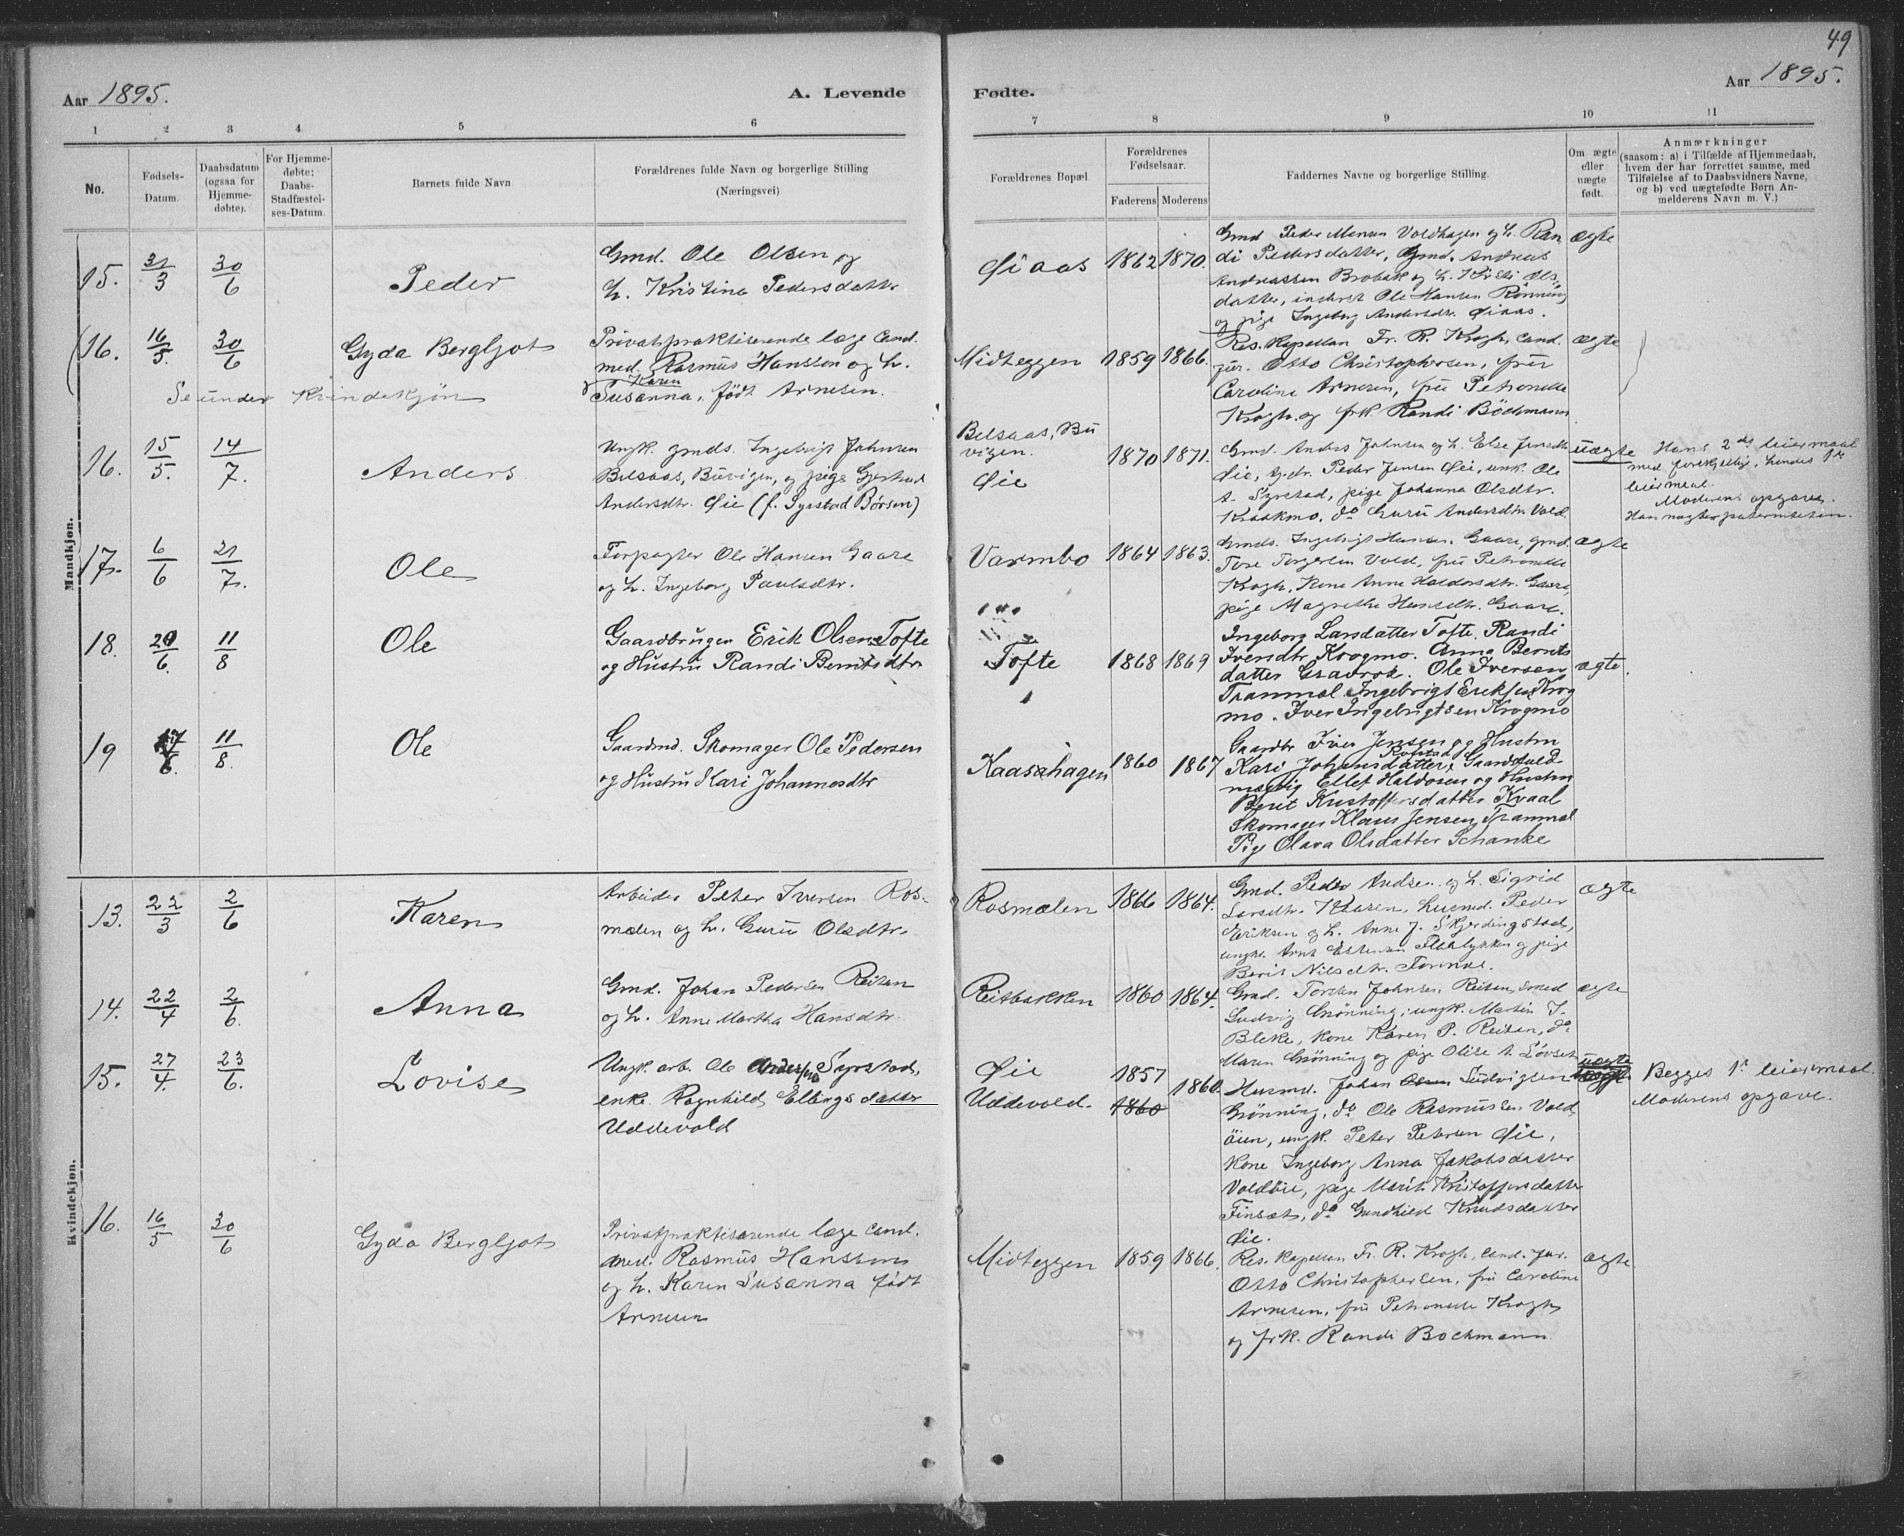 49
Aar 1895. A. Levende Fødte. Aar 1895.
1 2 3 4 5 6 7 8 9 10 11
No.
Fødsels-
Datum.
Daabsdatum
(ogsaa for
Hjemme-
døbte).
For Hjemme-
døbte:
Daabs-
Stadfæstel-
ses-Datum.
Barnets fulde Navn
Forældrenes fulde Navn og borgerlige Stilling
(Næringsvei)
Forældrenes Bopæl.
Forældrenes
Fødselsaar.
Faderens Moderens
Faddernes Navne og borgerlige Stilling.
Om ægte
eller
uægte
født.
Anmærkninger
(saasom: a) i Tilfælde af Hjemmedaab,
hvem der har forrettet samme, med
Tilføielse af to Daabsvidners Navne,
og b) ved uægtefødte Børn An-
melderens Navn m. V.)
Mandkjøn.
15. 31/3 30/6 Peder
Gmd. Ole Olsen og
h. Kristina Pedersdatter
Øiaas 1862 1870.
Gmd. Peder Monsen Voldhagen og h. Ran
di Pedersdatter, Gmd. Andreas
Andreassen Brobak og h. Ols
datter, inderst Ole Hansen Rønning
og pige Ingeborg Andersdtr. Øiaas.
ægte
16. 16/5 30/6 Gyda Bergljot
Privatpraktiserende læge Cand.
med. Rasmus Hansson og h.
Karen
Susanna, født Arnesen.
Midteggen 1859 1866.
Res. Kapellan Fr. R. Krogh, Cand.
jur. Otto Christophersen, fru
Caroline Arnesen, fru Petronelle
Krogh og frk. Randi Bochmann
ægte
Se under Kvindekjøn
16. 15/5. 14/7. Anders
Ungk. gmds. Ingebrigt Johnsen
Belsaas, Buvigen, og pige Gjertrud
Andersdtr. Øie (f. Syrstad Børsen)
Belsaas, Bu
vigen.
Øie
1870 1871.
Gmd. Anders Johnsen og h. Else Jensdtr.
Øie, Peder Jensen Øie, unk. Ole
A. Syrstad, pige Johanna Olsdtr.
Kraakmo, do Guru Andersdtr. Vold.
uægte
Hans 2det leiermaal
med forskjellig, hendes 1ste
leiermaal.
Moderens opgave.
Han nægter paterniteten.
17. 6/6 21/7. Ole
Forpagter Ole Hansen Gaare
og h. Ingeborg Paulsdtr.
Varmbo 1864 1863.
Gmds. Ingebrigt Hansen Gaare, gmd.
Tore Torgersen Vold, fru Petronelle
Krogh, Kone Anne Haldorsdtr. Gaare,
pige Magrethe Hansdtr. Gaare.
ægte
18. 20/6 11/8 Ole
Gaardbrugen Erik Olsen Tofte
og Hustru Randi Berntsdtr
Tofte 1868 1869
Ingeborg Larsdatter Tofte. Randi
Iversdtr Krogmo. Anna Bernts
datter Gravrok. Ole Iversen
Trammal. Ingebrigt Eriksen Krog
mo. Iver Ingebrigtsen Krogmo
ægte.
19 17/6. 11/8. Ole
Gaardmd. Skomager Ole Pedersen
og Hustru Kari Johannesdtr
Kaasahagen 1860 1867
Gaardbr Iver Jensen og Hustru
Kari Johansdatter, Gaardfuld
mægtig Ellef Haldosen og Hustru
Berit Kristoffersdatter Kvaal
Skomager Klaus Jensen Trammal
Pige Olava Olsdatter Schanke
Kvindekjøn.
13. 22/3 2/6 Karen
Arbeider Peter Iversen Ros-
mælen og h. Guru Olsdtr.
Rosmælen 1866 1864.
Gmd. Peder Andsen og h. Sigrid
Larsdtr. Kaaren, husmd. Peder
Eriksen og h. Anne J. Skjerdingstad,
ungk. Arnt Estensen og pige
Berit Nilsdtr.
ægte
14. 22/4 2/6. Anna
Gmd. Johan Pedersen Reitan
og h. Anne Martha Hansdtr.
Reitbakken 1860 1864.
Gmd. Torsten Johnsen Reitan, smed
Ludvig Grønning, ungk. Martin I.
Bleke, kone Karen P. Reitan, do
Maren Grønning og pige Olise A. Løvset
ægte
15. 27/4. 23/6. Lovise
Ungk. arb. Ole Andersen Syrstad,
enke Ragnhild Ellingsdatter
Uddevold
Øie
Uddevold.
1857
1860 1860.
Husmd. Johan Olsen Ludvigsen
Grønning, do Ole Rasmussen Vold
øien, ungk. Peter Petersen Øie,
kone Ingeborg Anna Jakobsdatter
Voldøie, pige Marit Kristoffersdatter
Finsæt, do Gundhild Knudsdatter
Øie.
uægte
Begges 1ste leiermaal.
Moderens opgave.
16. 16/5 30/6 Gyda Bergljot
Privatpraktiserende læge Cand.
med. Rasmus Hansson
og h. Karen Susanna født
Arnesen
Midteggen 1859 1866.
Res. Kapellan Fr. R. Krogh, Cand. jur.
Otto Christophersen, fru Caroline
Arnesen, fru Petronelle Krogh
og frk. Randi Bochmann.
ægte